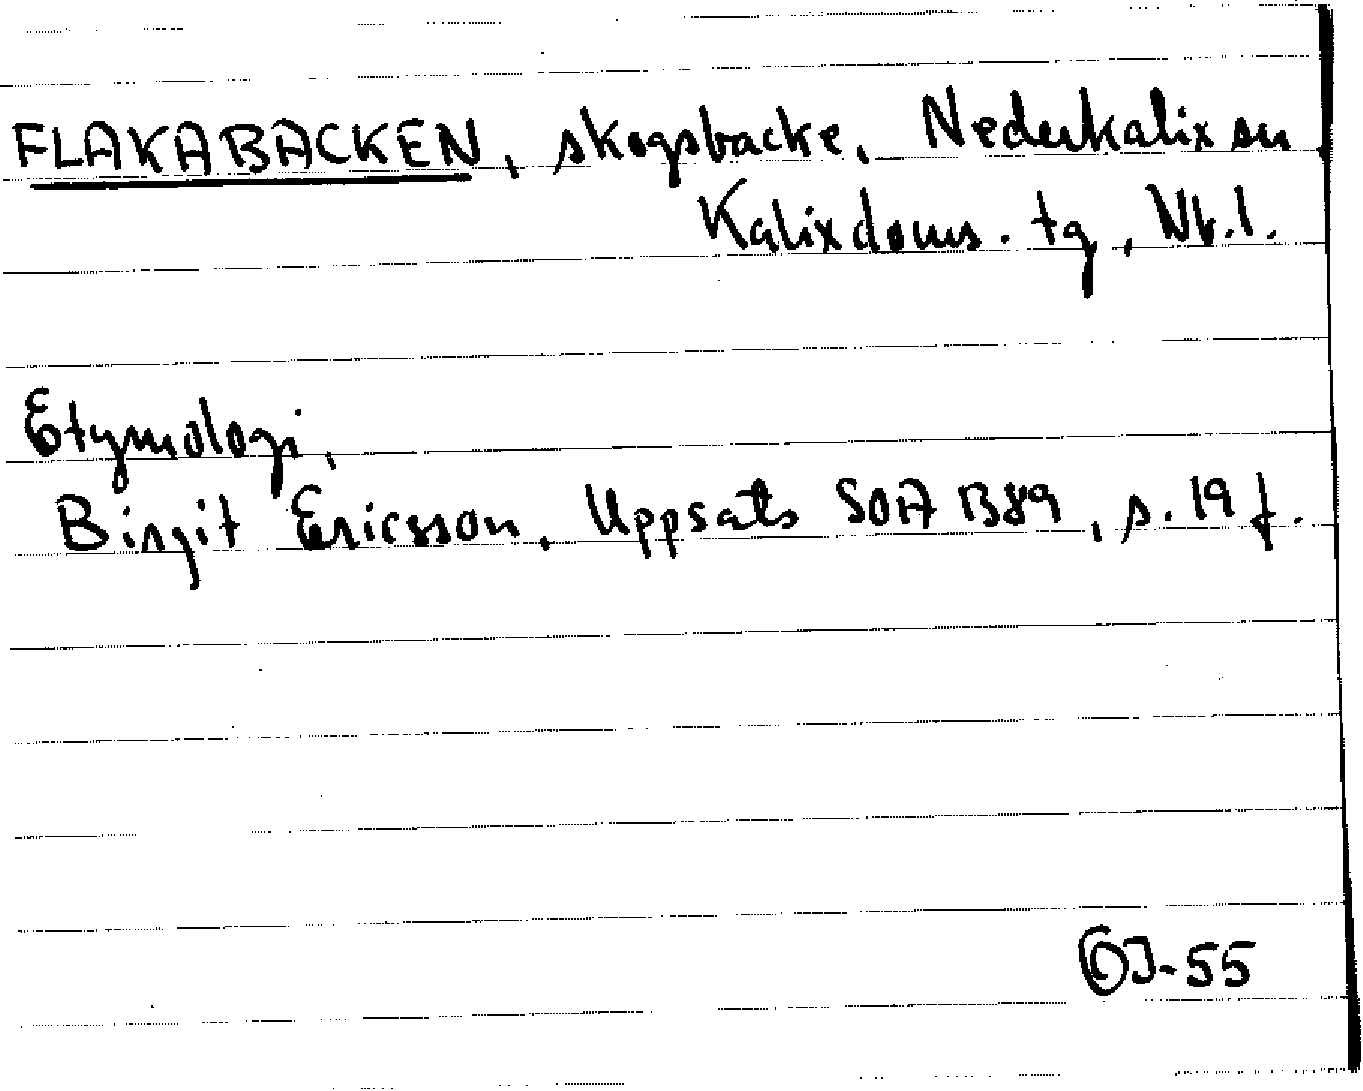 FLAKABACKEN, skogsbacke, Nederkalix sn
Kalix doms. tg, Nb. l.
Etymologi,
Birgit Ericsson, Uppsats SOA B89, s. 19 f.
55